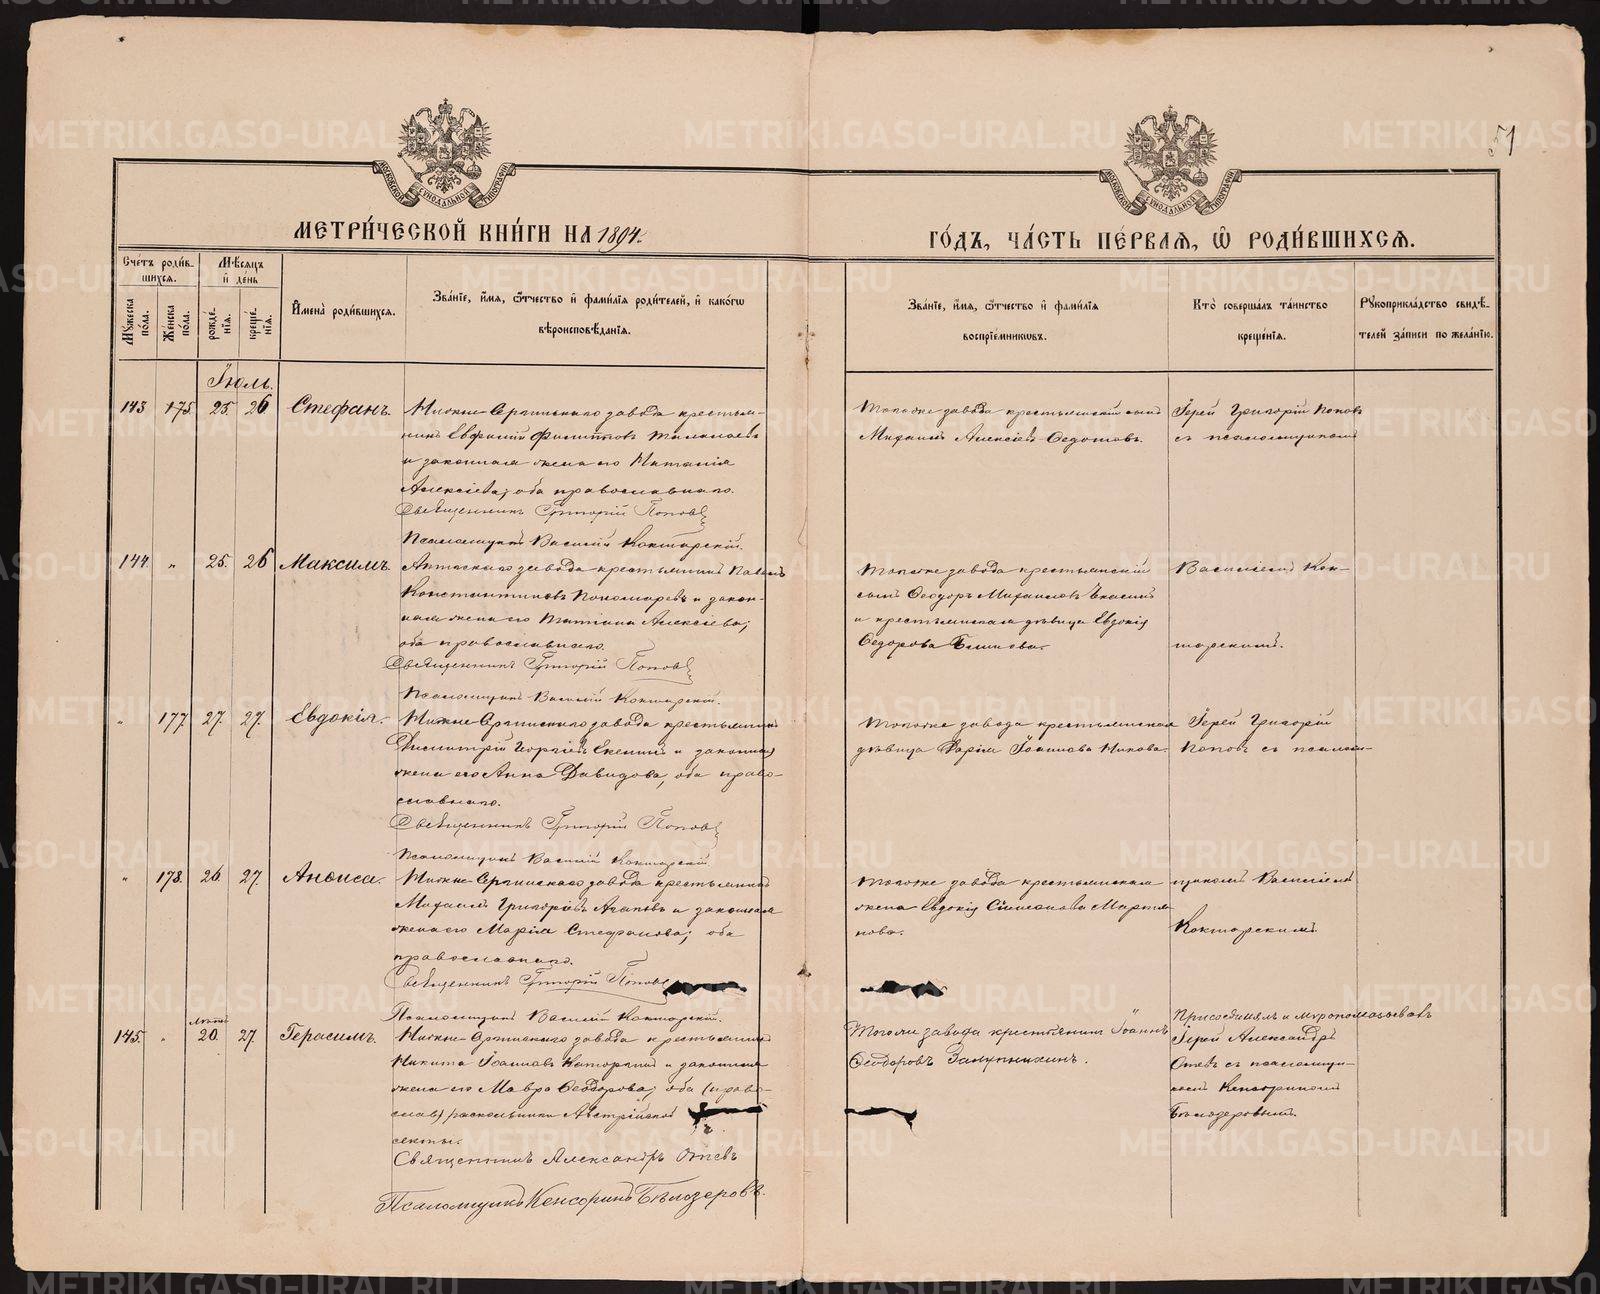 51
МЕТРИ́ЧЕСКОЙ КНИ́ГИ НА 1894
ГО́ДЪ, ЧА́СТЬ ПЕ́РВАЯ, Ѽ РОДИ́ВШИХСЯ.
Сче́тъ роди́в-
шихся.
Му́жеска по́ла.
Же́нска по́ла.
Мѣ́сяцъ
и҆ де́нь
рожде́нїя.
креще́нїя.
И҆мена̀ роди́вшихся.
Зва́нїе, и҆́мя, ѻ҆́тчество и҆ фами́лїя роди́телей, и҆ како́гѡ
вѣроисповѣ́данїя.
Зва́нїе, и҆́мя, ѻ҆́тчество и҆ фами́лїя
воспрїе́мниковъ.
Кто̀ соверша́лъ та́инство
креще́нїя.
Рꙋкоприкла́дство свидѣ́-
телей за́писи по жела́нїю.
Іюль.
143 175. 25. 26 Стефанъ.
Нижне-Сергинскаго завода крестья-
нинъ Евфимій Филипповъ
и законная жена его Наталія
Алексіева; оба православнаго.
Священникъ Григорій Поповъ
Псаломщикъ Василій Кокшарскій.
Тогоже завода крестьянскій сынъ
Михаилъ Алексіевъ Федотовъ.
Іерей Григорій Поповъ
съ псаломщикомъ
144. " 25. 26 Максимъ.
завода крестьянинъ Павелъ
Константиновъ Пономаревъ и закон-
ная жена его Татіана Алексіева;
оба православнаго.
Священникъ Григорій Поповъ
Псаломщикъ Василій Кокшарскій.
Тогоже завода крестьянскій
сынъ Ѳеодоръ Михаиловъ
и крестьянская дѣвица Евдокія
Ѳедорова Блинова.
Василіемъ Кок-
шарскимъ.
" 177. 27. 27. Евдокія.
Нижне-Сергинскаго завода крестьянинъ
Димитрій Георгіевъ и законная
жена его Анна Давидова, оба право-
славнаго.
Священникъ Григорій Поповъ
Псаломщикъ Василій Кокшарскій.
Тогоже завода крестьянская
дѣвица Марія Іоаннова
Іерей Григорій
Поповъ съ псалом-
" 178. 26. 27. Анѳиса.
Нижне-Сергинскаго завода крестьянинъ
Михаилъ Григоріевъ Агаповъ и законная
жена его Марія Стефанова; оба
православнаго.
Священникъ Григорій Поповъ
Псаломщикъ Василій Кокшарскій.
Тогоже завода крестьянская
жена Евдокія Симеонова Мартья-
нова.
щикомъ Василіемъ
Кокшарскимъ
145. " 20. 27. Герасимъ.
Нижне-Сергинскаго завода крестьянинъ
Никита Іоанновъ и законная
жена его Мавра Ѳеодорова; оба (право-
слав) раскольники Австрійской
секты.
Священникъ Александръ
Псаломщикъ Кенсоринъ Бѣлозеровъ.
Тогоже завода крестьянинъ Іоаннъ
Ѳеодоровъ
Присоединялъ и мѵропомазовалъ
Іерей Александръ
съ псаломщи-
комъ Кенсориномъ
Бѣлозеровымъ.